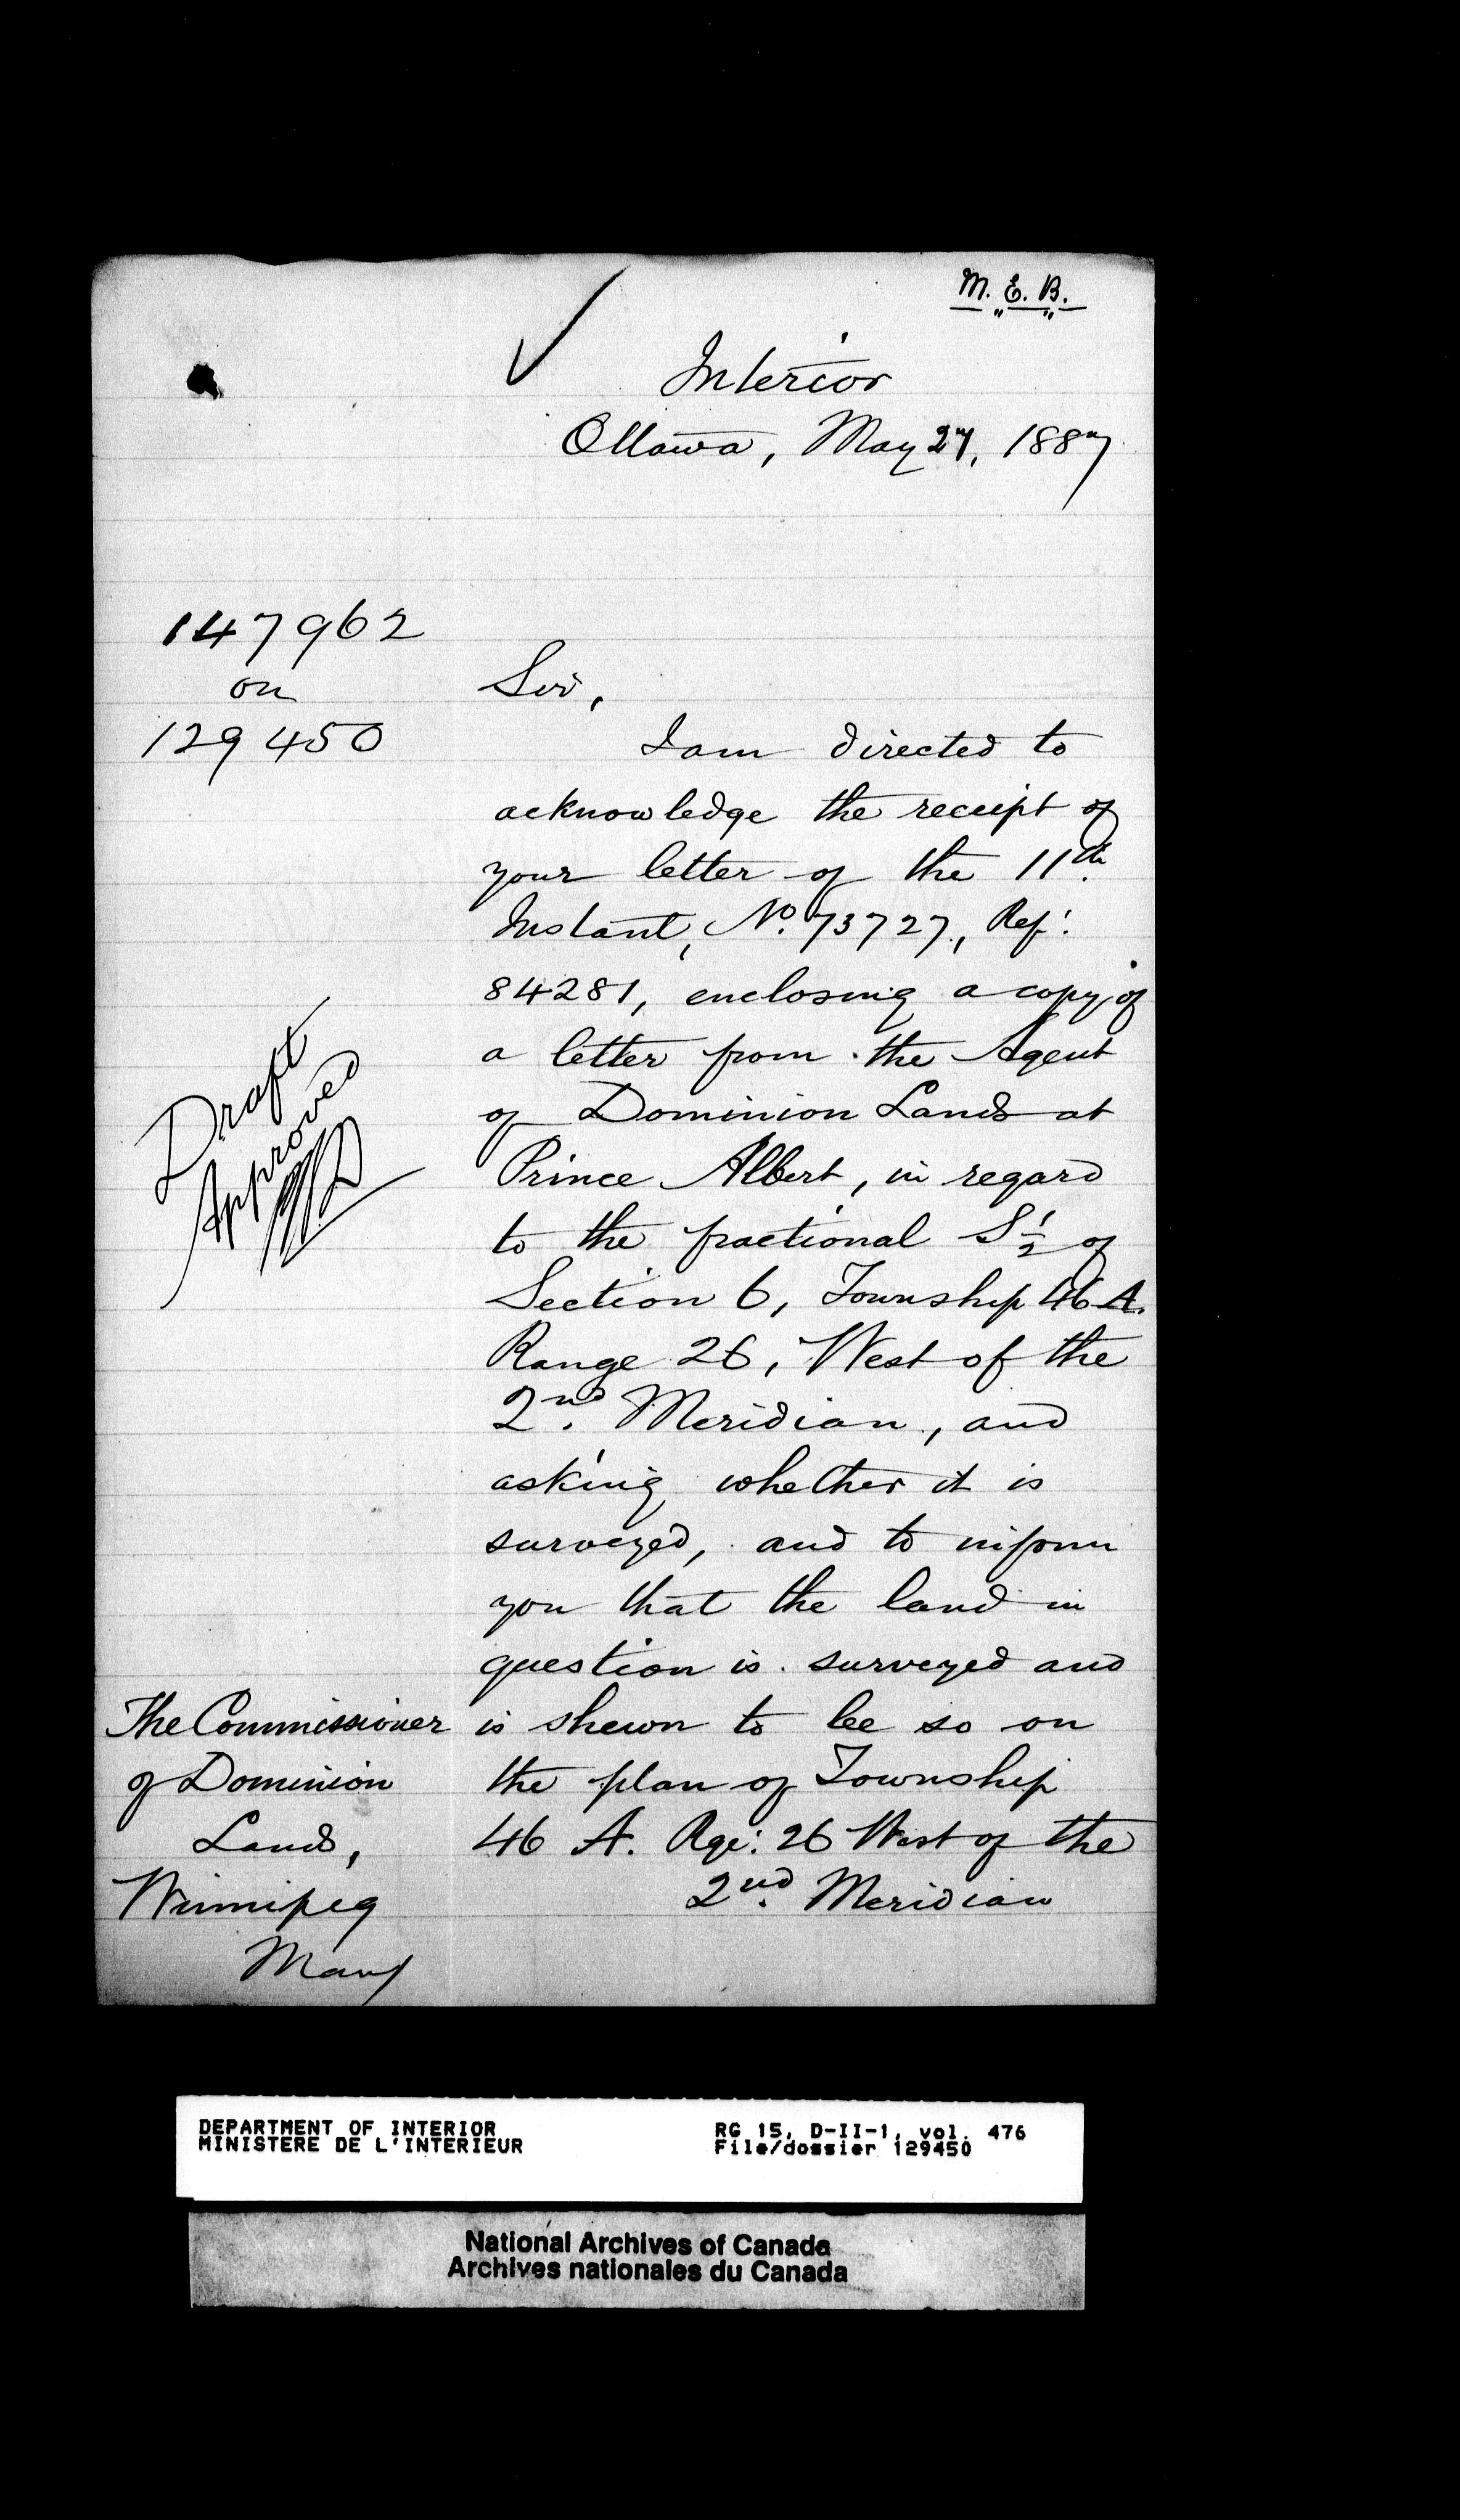 M. E. B.
Interior
Ottawa, May 27, 1887
147962
on
129450
Sir,
I am directed to
acknowledge the receipt of
your letter of the 11th
Instant, No. 73727, Ref:
84281, enclosing a copy of
a letter from the Agent
of Dominion Lands at
Prince Albert, in regard
to the fractional S½ of
Section 6, Township 46 A.
Range 26, West of the
2nd. Meridian, and
asking whether it is
surveyed, and to inform
you that the land in
question is surveyed and
is shewn to be so on
the plan of Township
46 A. Rge: 26 West of the
2nd. Meridian
Draft
Approved
The Commissioner
of Dominion
Lands,
Winnipeg
Man
DEPARTMENT OF INTERIOR
MINISTERE DE L'INTERIEUR
RG 15, D-II-1, vol. 476
File/dossier 129450
National Archives of Canada
Archives nationales du Canada